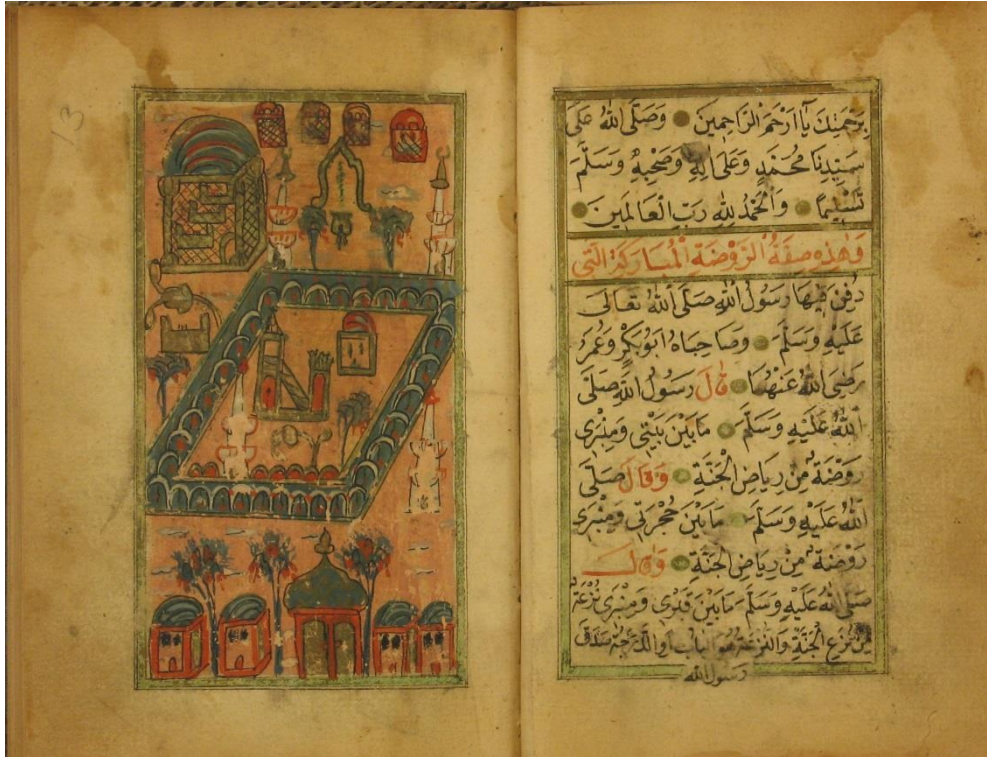 بِرَحْمَتِكَ يَا اَرْحَمَ الرَّاحِمِينَ وَصَلَّى اللهُ عَلَى
سَيِّدِنَا مُحَمَّدٍ وَعَلَى اٰلِهِ وَصَحْبِهِ وَسَلَّمَ
تَسْلِيمًا وَالْحَمْدُ لِلّٰهِ رَبِّ الْعَالَمِينَ
وَهٰذِهِ صِفَةُ الرَّوْضَةِ الْمُبَارَكَةِ الَّتِي
دُفِنَ فِيهَا رَسُولُ اللهِ صَلَّى اللهُ تَعَالَى
عَلَيْهِ وَسَلَّمَ وَصَاحِبَاهُ اَبُو بَكْرٍ وَعُمَرُ
رَضِيَ اللهُ عَنْهُمَا قَالَ رَسُولُ اللهِ صَلَّى
اللهُ عَلَيْهِ وَسَلَّمَ مَا بَيْنَ بَيْتِي وَمِنْبَرِي
رَوْضَةٌ مِنْ رِيَاضِ الْجَنَّةِ وَقَالَ صَلَّى
اللهُ عَلَيْهِ وَسَلَّمَ مَا بَيْنَ حُجْرَتِي وَمِنْبَرِي
رَوْضَةٌ مِنْ رِيَاضِ الْجَنَّةِ وَقَالَ
صَلَّى اللهُ عَلَيْهِ وَسَلَّمَ مَا بَيْنَ قَبْرِي وَمِنْبَرِي تُرْعَةٌ
مِنْ تُرَعِ الْجَنَّةِ وَالتُّرْعَةُ هُوَ الْبَابُ اَوِ الدَّرَجَةُ صَدَقَ
رسول الله
13